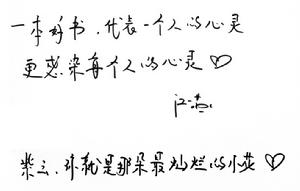 一本好书，代表一个人的心灵
更感染每个人的心灵♡
你就是那朵最灿烂的小花♡